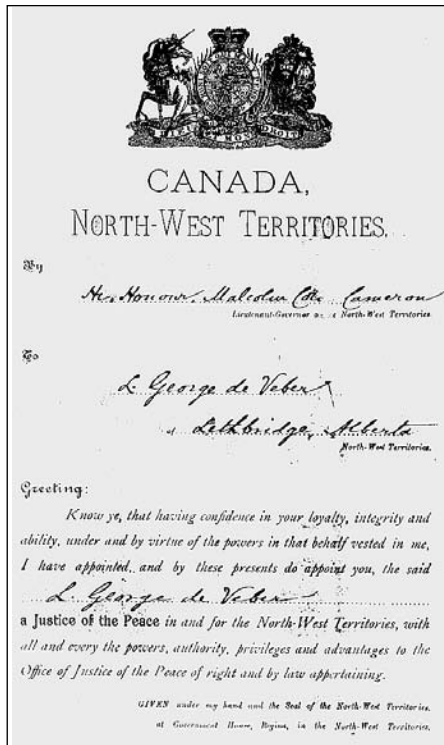 DIEU ET MON DROIT
CANADA,
NORTH-WEST TERRITORIES.
By
His Honour, Malcolm Cameron
Lieutenant-Governor North-West Territories
To
L. George de Veber
of Lethbridge, Alberta
North-West Territories.
Greeting:
Know ye, that having confidence in your loyalty, integrity and
ability, under and by virtue of the powers in that behalf vested in me,
I have appointed, and by these presents do appoint you, the said
L. George de Veber
a Justice of the Peace in and for the North-West Territories, with
all and every the powers, authority, privileges and advantages to the
Office of Justice of the Peace of right and by law appertaining.
GIVEN under my hand and the Seal of the North-West Territories,
at Government House, Regina, in the North-West Territories.